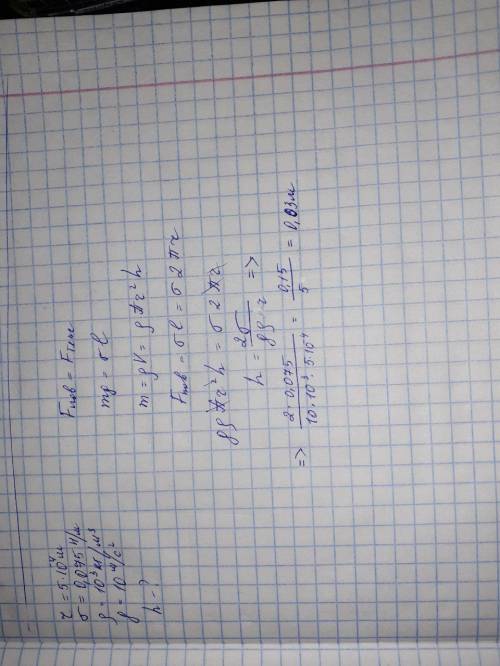 r = 5·10⁴ м
σ = 0,075 Н/м
ρ = 10³ кг/м³
g = 10 м/с²
h - ?
Fпов = Fтяж
mg = σl
m = ρV = ρπr²h
Fпов = σl = σ2πr
gρπr²h = σ2πr
h = 2σ / gρ r =>
=> 2·0,075 / 10·10³·5·10⁴ = 0,15 / 5 = 0,03 м